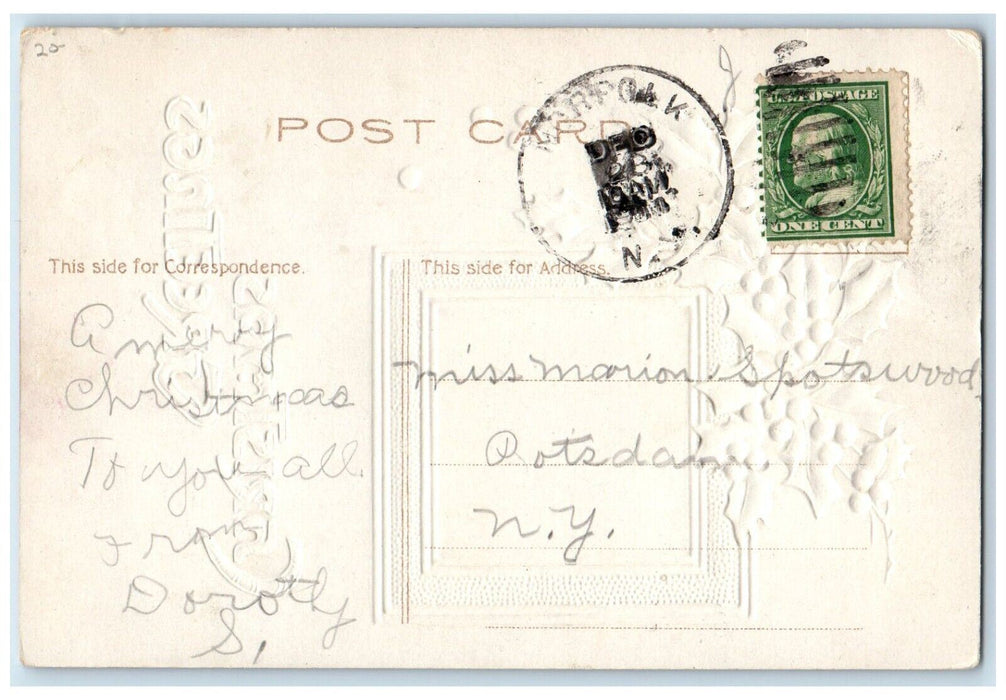 20
POST CARD
NORFOLK
DEC
AM
N.Y.
U.S. POSTAGE
ONE CENT
This side for Correspondence.
This side for Address.
A merry
Christmas
To you all.
From
Dorothy
S.
Miss Marion Spotswood,
Potsdam.
N.Y.